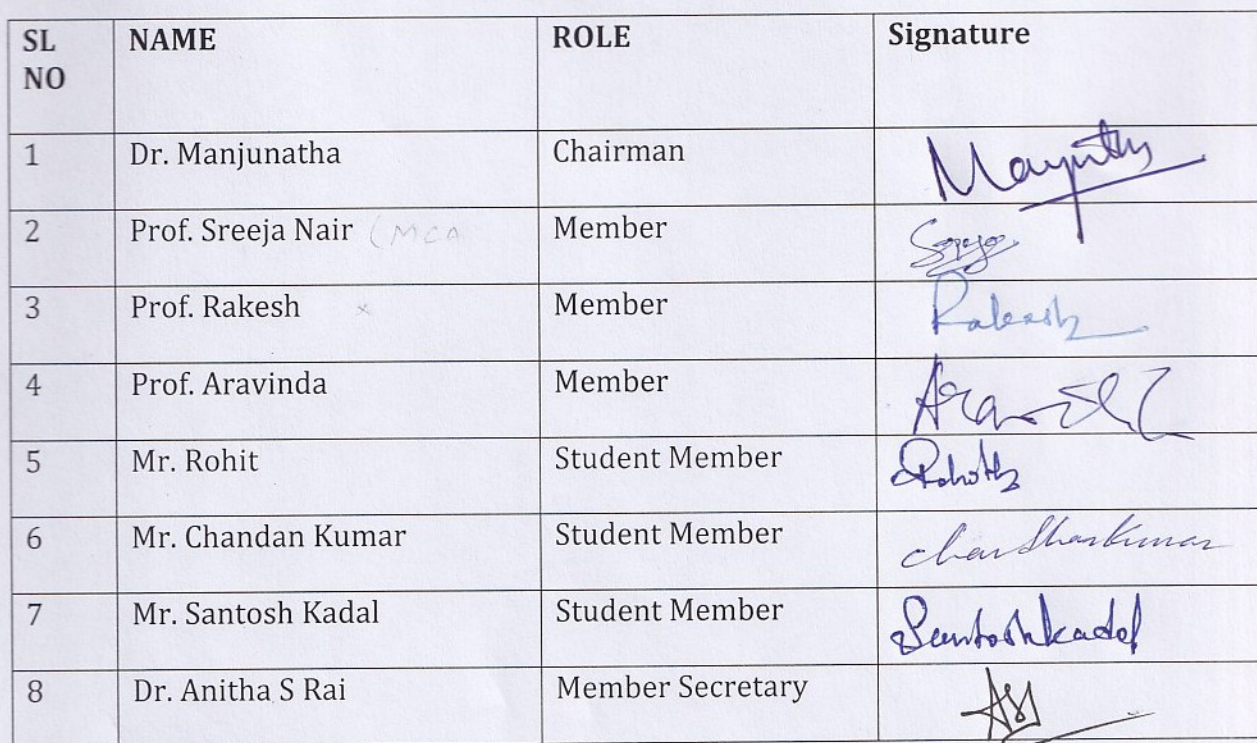 SL NO NAME ROLE Signature
1 Dr. Manjunatha Chairman
2 Prof. Sreeja Nair (MCA Member
3 Prof. Rakesh Member Rakesh
4 Prof. Aravinda Member
5 Mr. Rohit Student Member
6 Mr. Chandan Kumar Student Member
7 Mr. Santosh Kadal Student Member Santoshkadal
8 Dr. Anitha S Rai Member Secretary